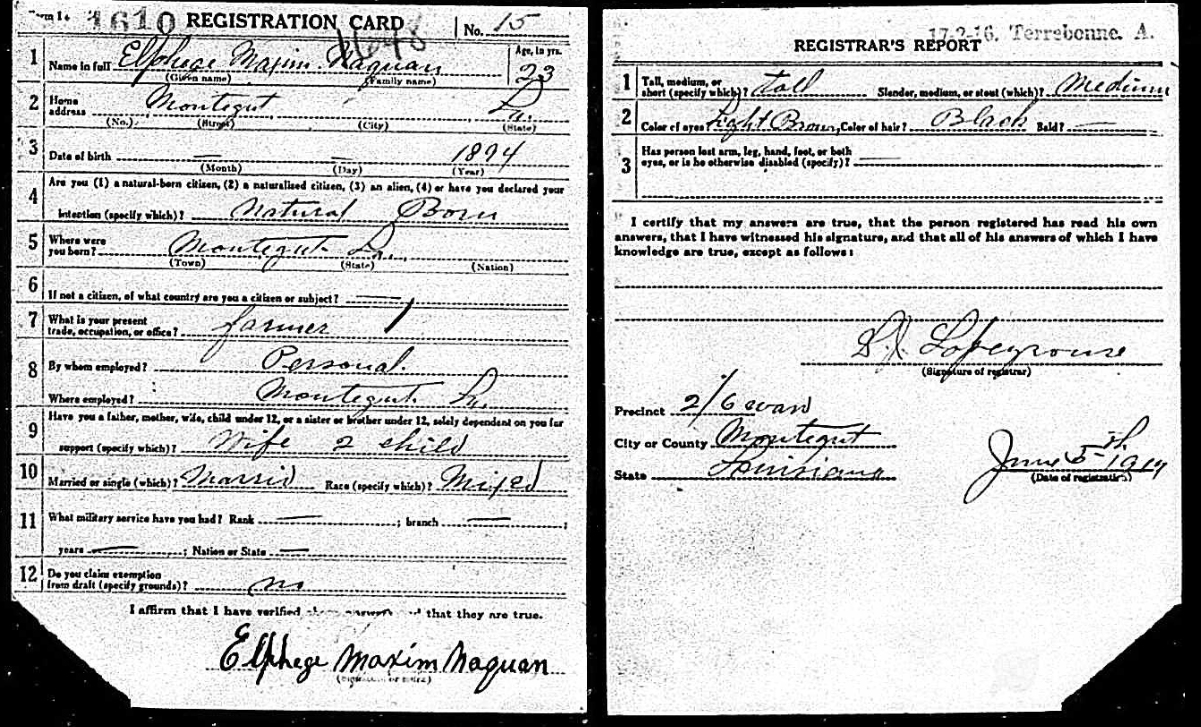 Form 1 1610 REGISTRATION CARD No. 15
1648
1 Name in full Elphege Maxim Naquan Age, in yrs. 23
(Given name) (Family name)
2 Home address Montegut La.
(No.) (Street) (City) (State)
3 Date of birth — — 1894
(Month) (Day) (Year)
4 Are you (1) a natural-born citizen, (2) a naturalized citizen, (3) an alien, (4) or have you declared your
intention (specify which)? Natural Born
5 Where were you born? Montegut La.
(Town) (State) (Nation)
6 If not a citizen, of what country are you a citizen or subject? —
7 What is your present trade, occupation, or office? farmer
8 By whom employed? Personal.
Where employed? Montegut La.
9 Have you a father, mother, wife, child under 12, or a sister or brother under 12, solely dependent on you for
support (specify which)? Wife 2 child
10 Married or single (which)? Marrid Race (specify which)? Mixed
11 What military service have you had? Rank — ; branch — ;
years — ; Nation or State —
12 Do you claim exemption from draft (specify grounds)? no
I affirm that I have verified above answers and that they are true.
Elphege Maxim Naquan
(Signature or mark)
17-2-16. Terrebonne. A.
REGISTRAR'S REPORT
1 Tall, medium, or short (specify which)? tall Slender, medium, or stout (which)? Medium
2 Color of eyes? Light Brown Color of hair? Black Bald? —
3 Has person lost arm, leg, hand, foot, or both
eyes, or is he otherwise disabled (specify)? —
I certify that my answers are true, that the person registered has read his own
answers, that I have witnessed his signature, and that all of his answers of which I have
knowledge are true, except as follows:
Lapeyrouse
(Signature of registrar)
Precinct 2/6 ward
City or County Montegut
State Louisiana
June 5th 1917
(Date of registration)